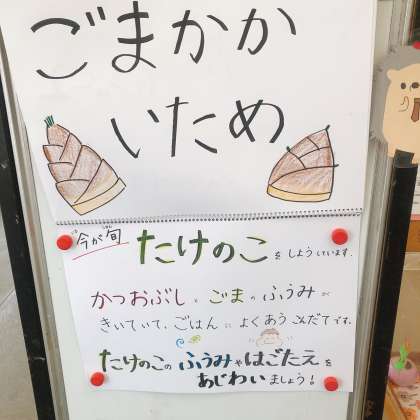 ごまかか
いため
いま しゅん
今が旬 たけのこをしようしています.
かつおぶしとごまのふうみが
きいていて、ごはんによくあうこんだてです。
たけのこのふうみやはごたえを
あじわいましょう!